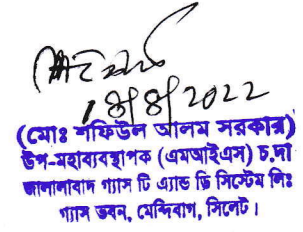 18/8/2022
(মোঃ শফিউল আলম সরকার)
উপ-মহাব্যবস্থাপক (এমআইএস) চ.দা
জালালাবাদ গ্যাস টি এ্যান্ড ডি সিস্টেম লিঃ
গ্যাস ভবন, মেন্দিবাগ, সিলেট।